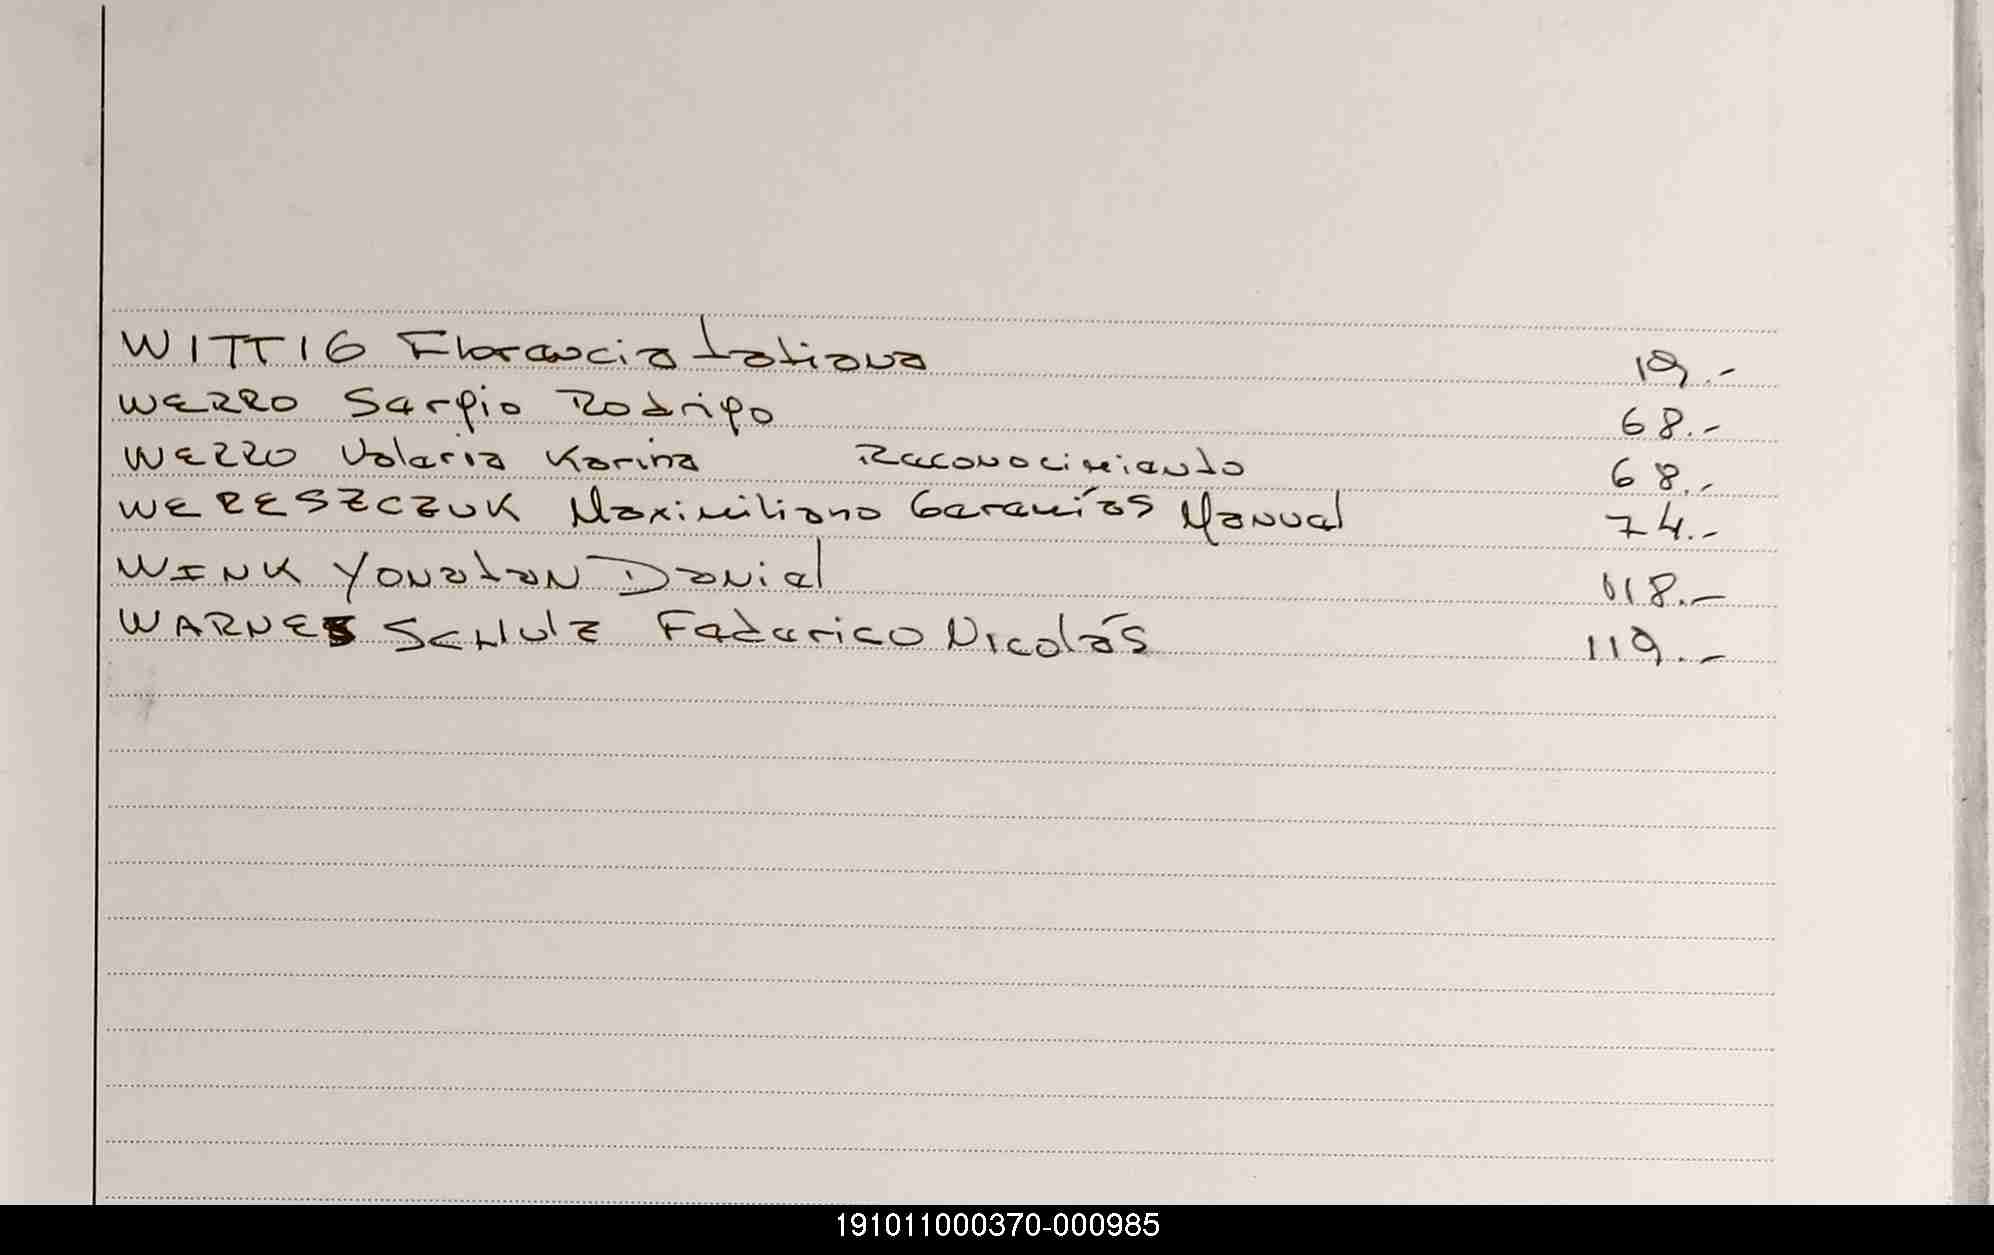 WITTIG Florencia Tatiana 19.-
WERRO Sergio Rodrigo 68.-
WERRO Valeria Karina Reconocimiento 68.-
WERESZCZUK Maximiliano Geremías Manuel 74.-
WINK Yonatan Daniel 118.-
WARNES SCHULZ Federico Nicolás 119.-
191011000370-000985